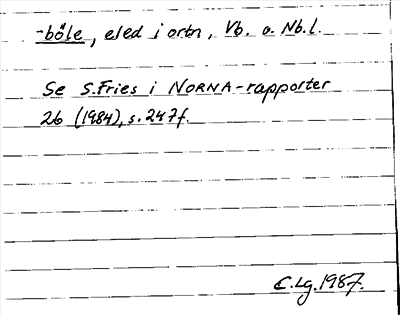 -böle, efled i ortn, Vb. o. Nb.l.
Se S. Fries i NORNA-rapporter
26 (1984), s. 247f.
C.Lg. 1987.